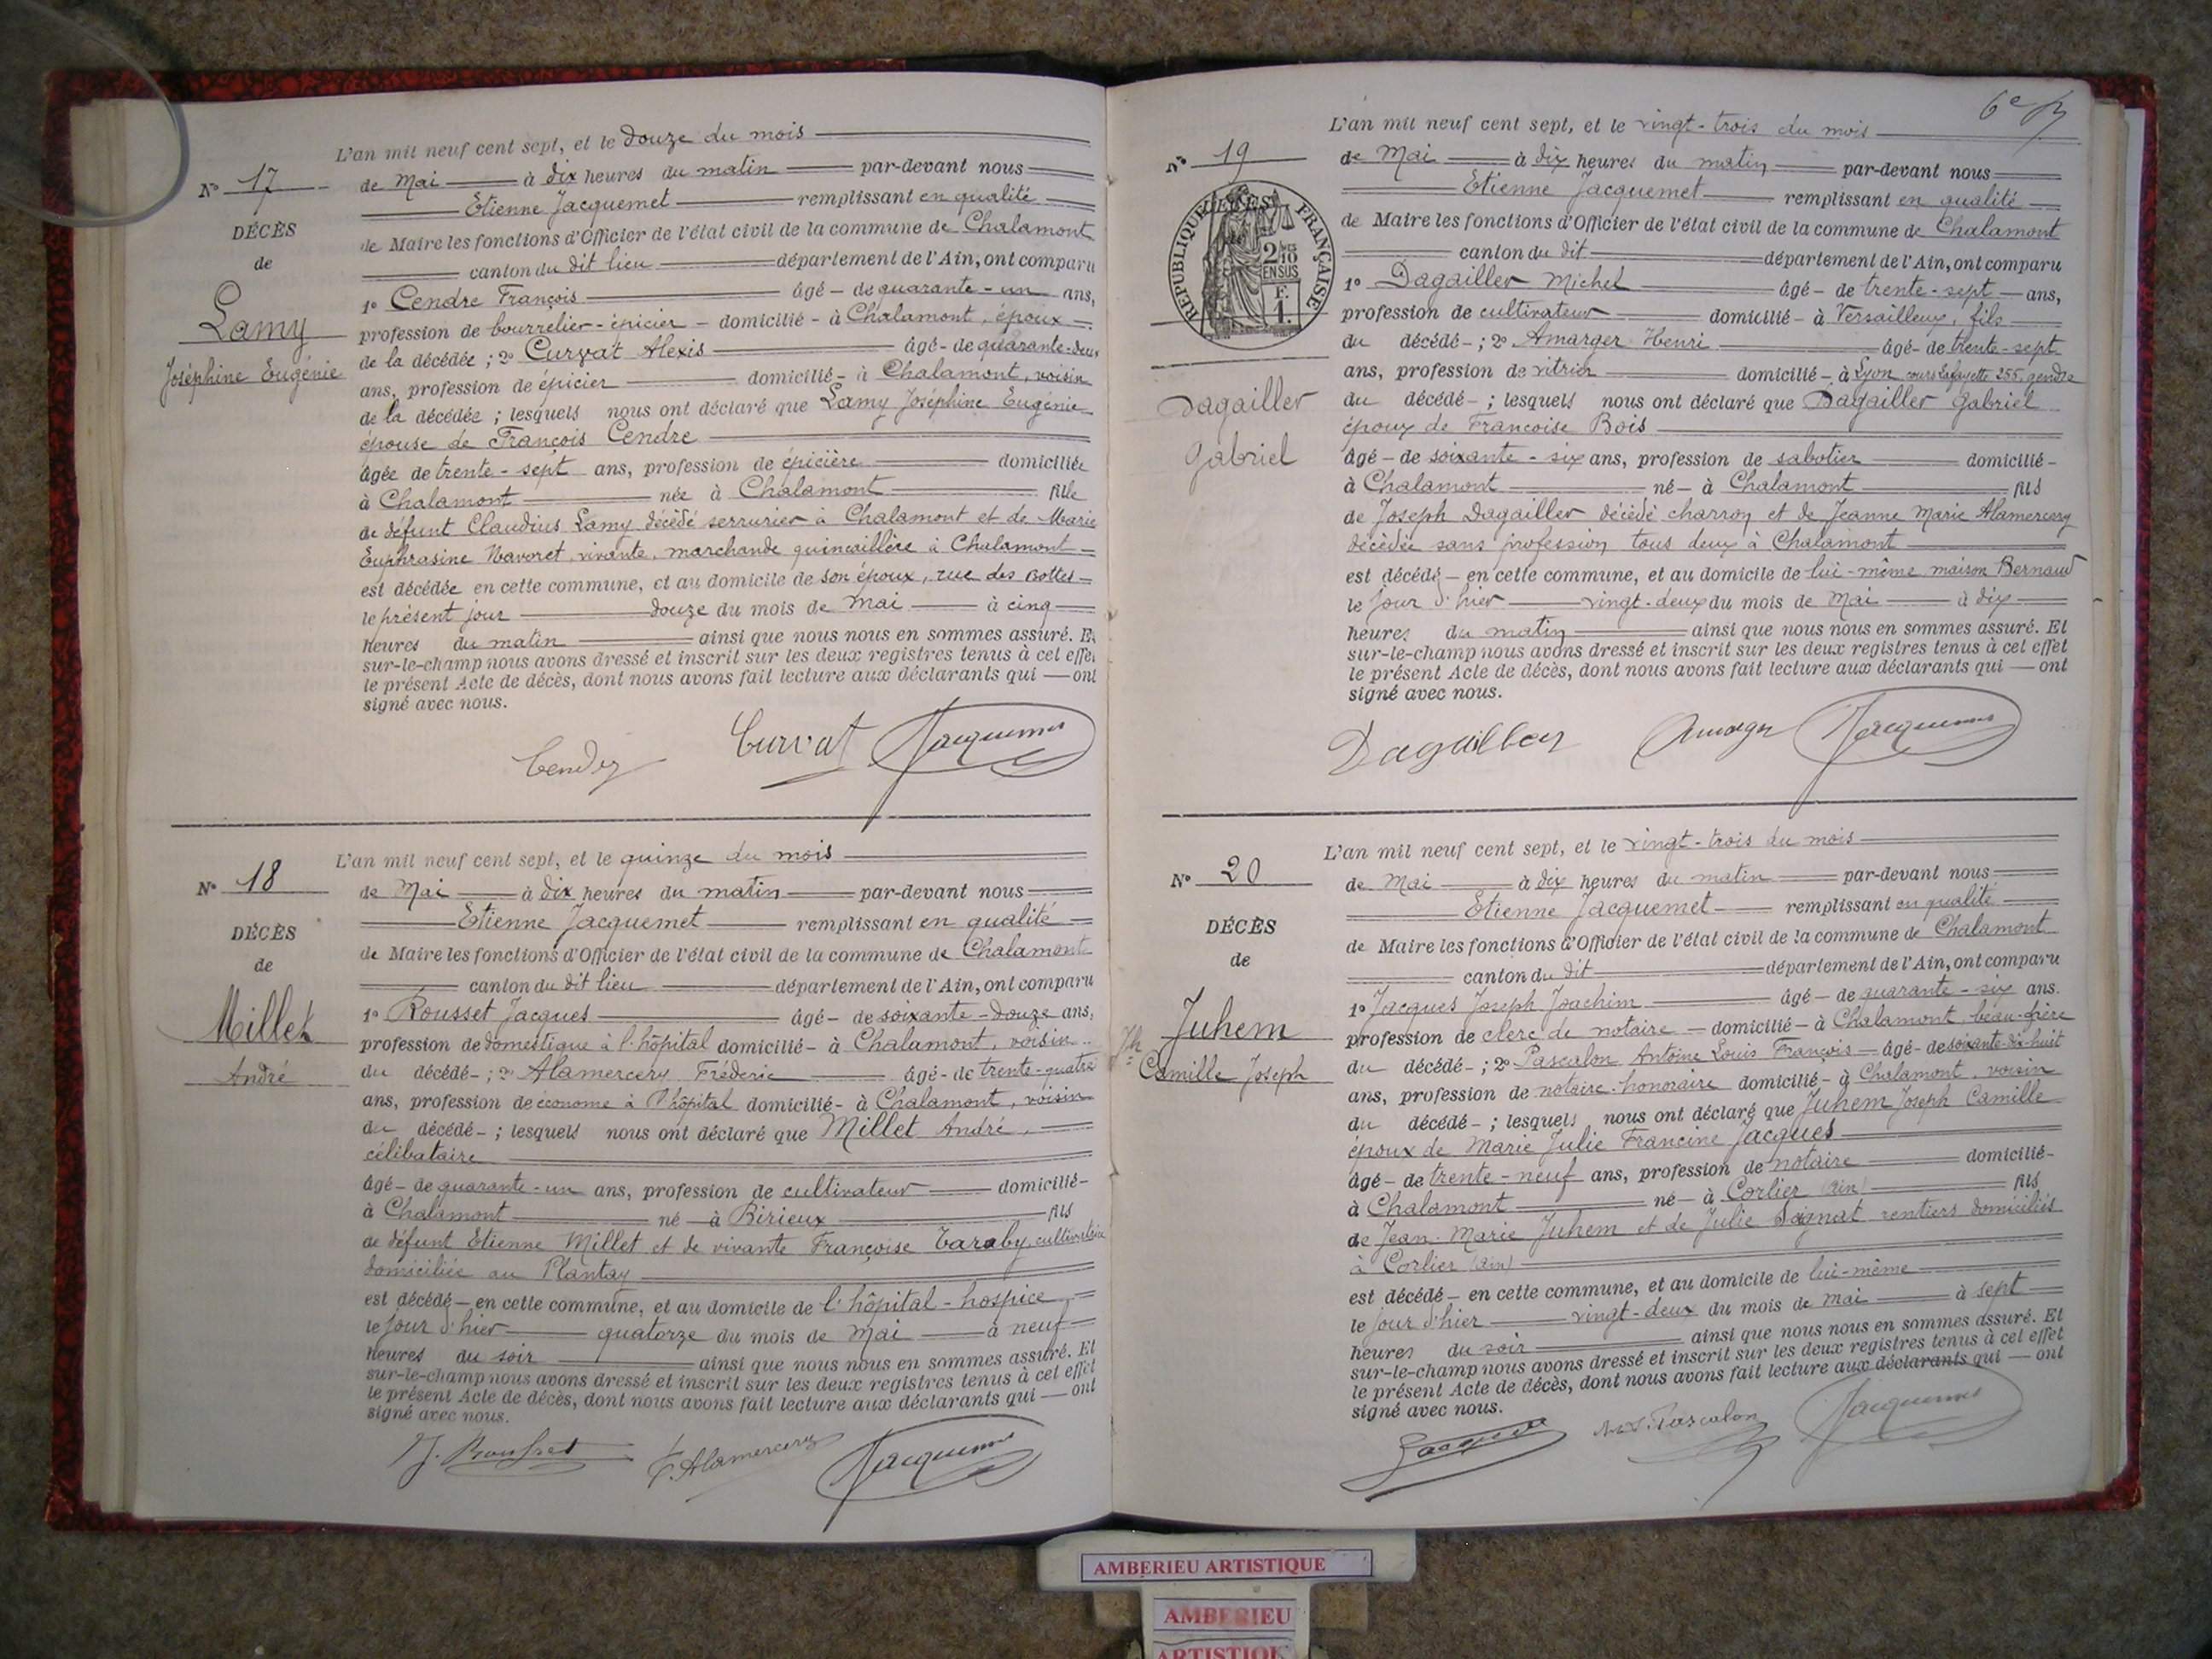 L'an mil neuf cent sept, et le douze du mois
N° 17
de Mai à dix heures du matin par-devant nous
Etienne Jacquemet remplissant en qualité
DÉCÈS
de Maire les fonctions d'Officier de l'état civil de la commune de Chalamont
de
canton du dit lieu département de l'Ain, ont comparu
Lamy
Joséphine Eugénie
1° Cendre François âgé de quarante-un ans,
profession de bourrelier-épicier domicilié à Chalamont, époux
de la décédée ; 2° Curvat Alexis âgé de quarante-deux
ans, profession de épicier domicilié à Chalamont, voisin
de la décédée ; lesquels nous ont déclaré que Lamy Joséphine Eugénie
épouse de François Cendre
âgée de trente-sept ans, profession de épicière domiciliée
à Chalamont née à Chalamont fille
de défunt Claudius Lamy décédé serrurier à Chalamont et de Marie
Euphrasine Navoret, vivante, marchande quincaillère à Chalamont
est décédée en cette commune, et au domicile de son époux, rue des
le présent jour douze du mois de Mai à cinq
heures du matin ainsi que nous nous en sommes assuré. Et
sur-le-champ nous avons dressé et inscrit sur les deux registres tenus à cet effet
le présent Acte de décès, dont nous avons fait lecture aux déclarants qui ont
signé avec nous.
Curvat Jacquemet
L'an mil neuf cent sept, et le quinze du mois
N° 18
de Mai à dix heures du matin par-devant nous
Etienne Jacquemet remplissant en qualité
DÉCÈS
de Maire les fonctions d'Officier de l'état civil de la commune de Chalamont
de
canton du dit lieu département de l'Ain, ont comparu
Millet
André
1° Rousset Jacques âgé de soixante-douze ans,
profession de domestique à l'hôpital domicilié à Chalamont, voisin
du décédé ; 2° Alamercery Fréderic âgé de trente-quatre
ans, profession de économe à l'hôpital domicilié à Chalamont, voisin
du décédé ; lesquels nous ont déclaré que Millet André,
célibataire
âgé de quarante-un ans, profession de cultivateur domicilié
à Chalamont né à Birieux fils
de défunt Etienne Millet et de vivante Françoise Taraby, cultivatrice
domiciliée au Plantay
est décédé en cette commune, et au domicile de l'hôpital-hospice
le jour d'hier quatorze du mois de Mai à neuf
heures du soir ainsi que nous nous en sommes assuré. Et
sur-le-champ nous avons dressé et inscrit sur les deux registres tenus à cet effet
le présent Acte de décès, dont nous avons fait lecture aux déclarants qui ont
signé avec nous.
J. Rousset F. Alamercery Jacquemet
6e
L'an mil neuf cent sept, et le vingt-trois du mois
N° 19
de Mai à dix heures du matin par-devant nous
Etienne Jacquemet remplissant en qualité
RÉPUBLIQUE FRANÇAISE
2/10 EN SUS
F. 1.
de Maire les fonctions d'Officier de l'état civil de la commune de Chalamont
canton du dit département de l'Ain, ont comparu
1° Dagailler Michel âgé de trente-sept ans,
profession de cultivateur domicilié à Versailleux, fils
du décédé ; 2° Amarger Henri âgé de trente-sept
ans, profession de vitrier domicilié à Lyon cours Lafayette 255, gendre
Dagailler
Gabriel
du décédé ; lesquels nous ont déclaré que Dagailler Gabriel
époux de Françoise Bois
âgé de soixante-six ans, profession de sabotier domicilié
à Chalamont né à Chalamont fils
de Joseph Dagailler décédé charron et de Jeanne Marie Alamercery
décédée sans profession tous deux à Chalamont
est décédé en cette commune, et au domicile de lui-même maison Bernaud
le jour d'hier vingt-deux du mois de Mai à dix
heures du matin ainsi que nous nous en sommes assuré. Et
sur-le-champ nous avons dressé et inscrit sur les deux registres tenus à cet effet
le présent Acte de décès, dont nous avons fait lecture aux déclarants qui ont
signé avec nous.
Dagailler Amarger Jacquemet
L'an mil neuf cent sept, et le vingt-trois du mois
N° 20
de Mai à dix heures du matin par-devant nous
Etienne Jacquemet remplissant en qualité
DÉCÈS
de Maire les fonctions d'Officier de l'état civil de la commune de Chalamont
de
canton du dit département de l'Ain, ont comparu
Juhem
Camille Joseph
1° Jacques Joseph Joachim âgé de quarante-six ans.
profession de clerc de notaire domicilié à Chalamont, beau-frère
du décédé ; 2° Pascalon Antoine Louis François âgé de soixante-dix-huit
ans, profession de notaire-honoraire domicilié à Chalamont, voisin
du décédé ; lesquels nous ont déclaré que Juhem Joseph Camille
époux de Marie Julie Francine Jacques
âgé de trente-neuf ans, profession de notaire domicilié
à Chalamont né à Corlier (Ain) fils
de Jean-Marie Juhem et de Julie Sagnat rentiers domiciliés
à Corlier (Ain)
est décédé en cette commune, et au domicile de lui-même
le jour d'hier vingt-deux du mois de Mai à sept
heures du soir ainsi que nous nous en sommes assuré. Et
sur-le-champ nous avons dressé et inscrit sur les deux registres tenus à cet effet
le présent Acte de décès, dont nous avons fait lecture aux déclarants qui ont
signé avec nous.
Jacques Pascalon Jacquemet
AMBERIEU ARTISTIQUE
AMBERIEU
ARTISTIQUE